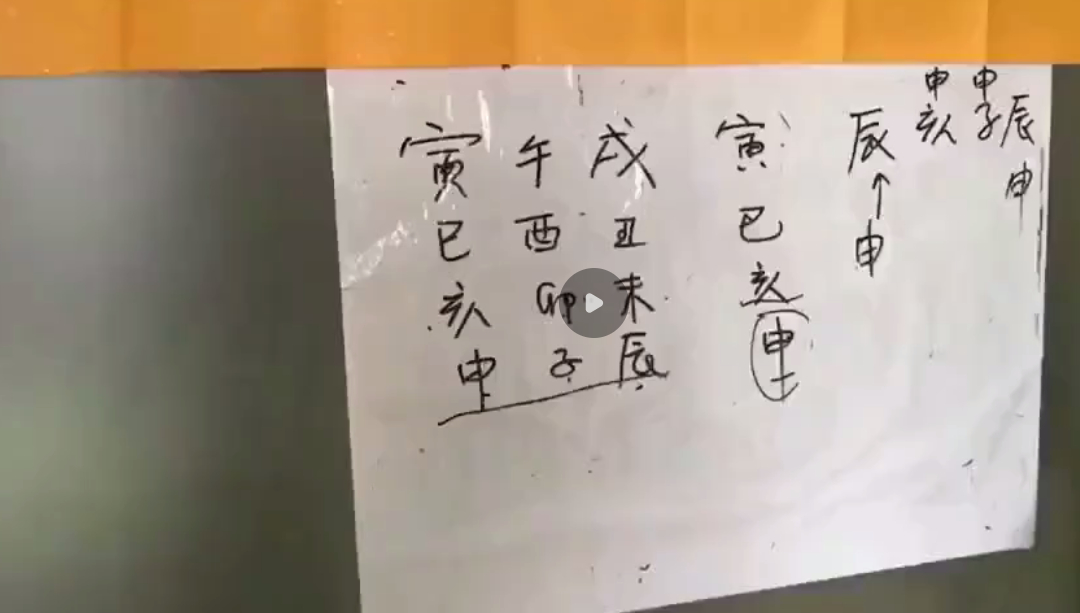 寅 午 戌
巳 酉 丑
亥 卯 未
申 子 辰
寅
巳
亥
申
辰
申
申 申
亥 子 辰
申